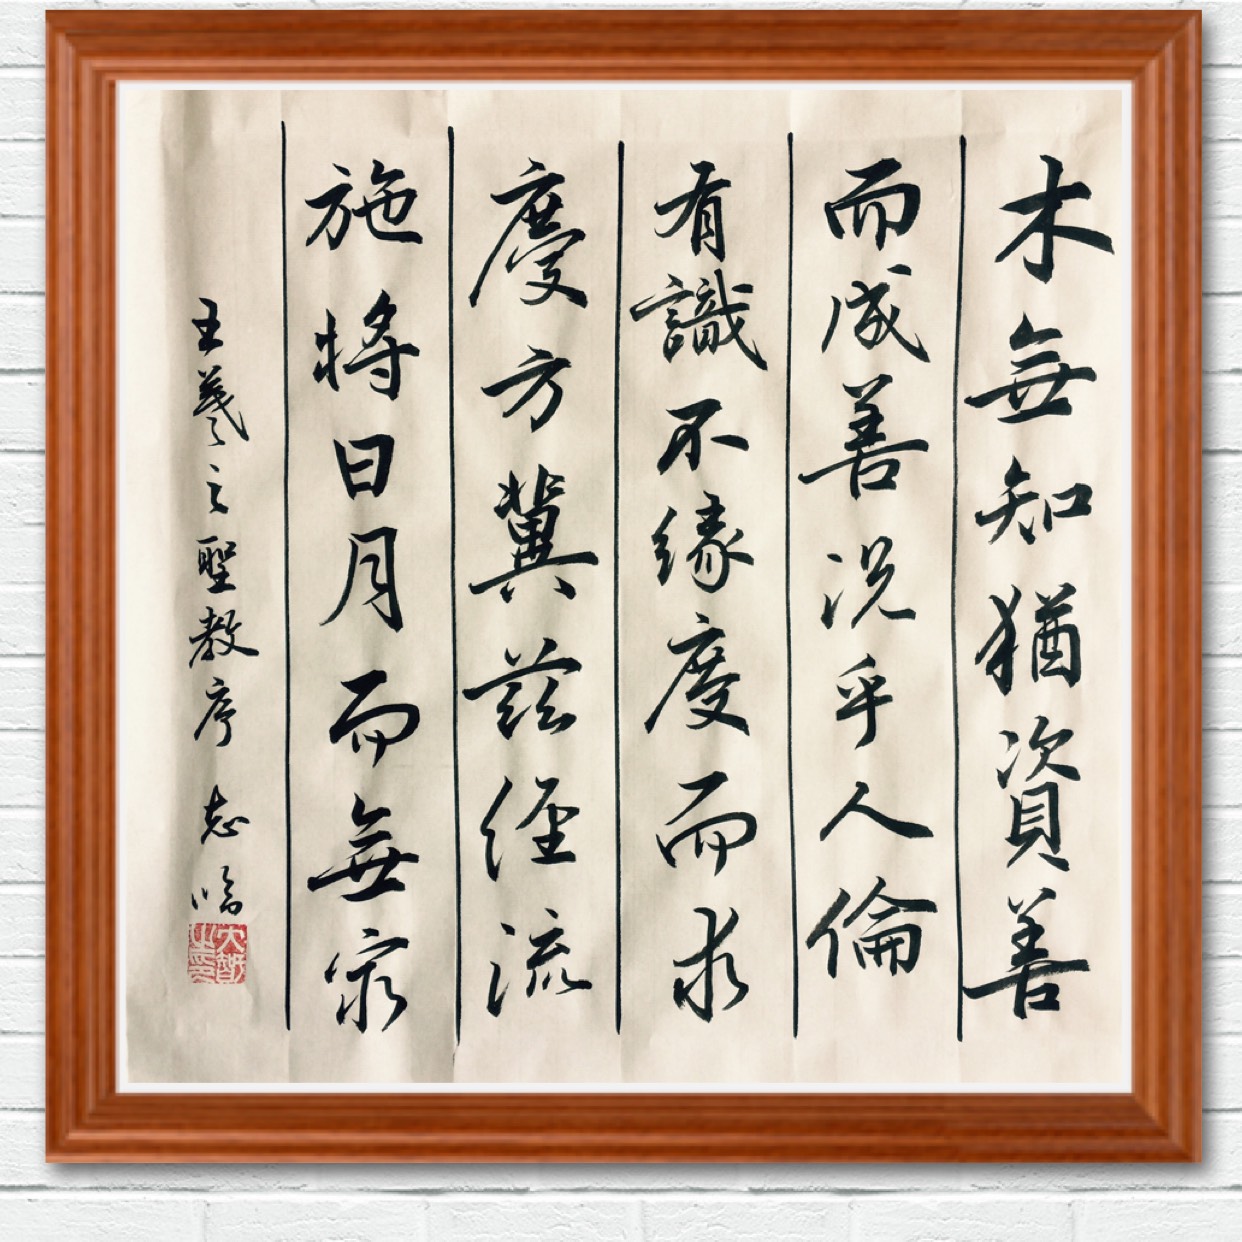 木無知猶資善
而成善況乎人倫
有識不緣慶而求
慶方冀茲經流
施將日月而無窮
王羲之聖教序 志臨